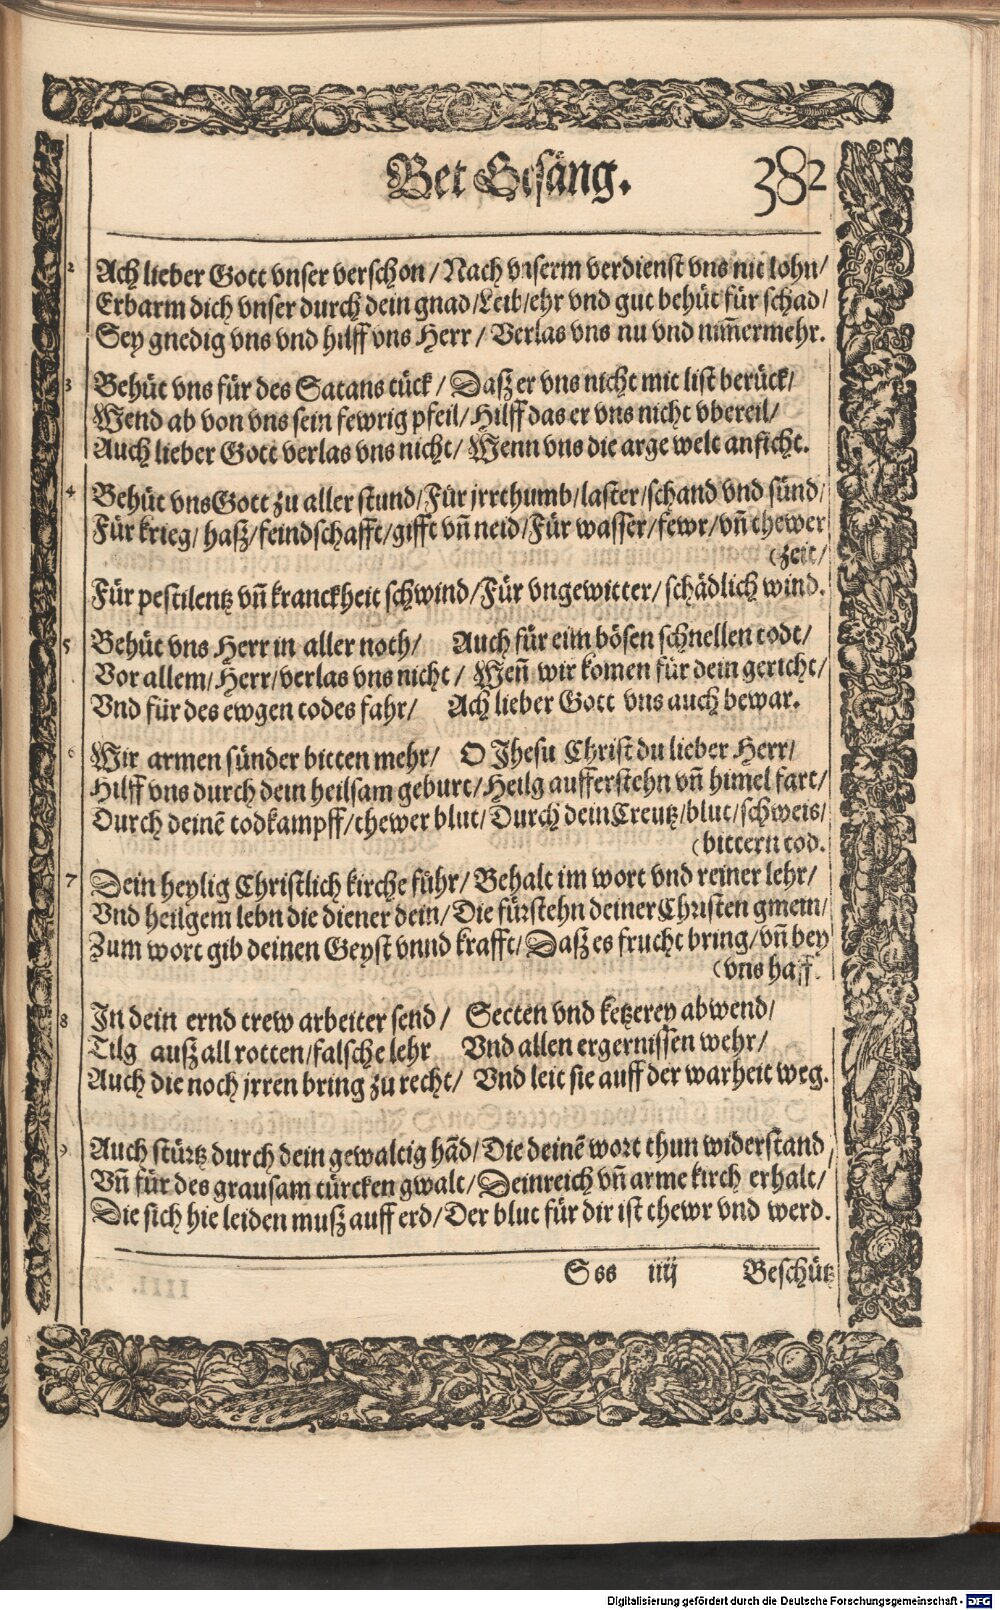 Bet Gesäng. 382
2 Ach lieber Gott vnser verschon / Nach vnserm verdienst vns nit lohn /
Erbarm dich vnser durch dein gnad / Leib / ehr vnd gut behüt für schad /
Sey gnedig vns vnd hilff vns Herr / Verlas vns nu vnd nim̃ermehr.
3 Behüt vns für des Satans tück / Daß er vns nicht mit list berück /
Wend ab von vns sein fewrig pfeil / Hilff das er vns nicht vbereil /
Auch lieber Gott verlas vns nicht / Wenn vns die arge welt anficht.
4 Behüt vns Gott zu aller stund / Für jrrthumb / laster / schand vnd sünd /
Für krieg / haß / feindschafft / gifft vñ neid / Für wasser / fewr / vñ thewer
(zeit /
Für pestilentz vñ kranckheit schwind / Für vngewitter / schädlich wind.
5 Behüt vns Herr in aller noth / Auch für eim bösen schnellen todt /
Vor allem / Herr / verlas vns nicht / Weñ wir komen für dein gericht /
Vnd für des ewgen todes fahr / Ach lieber Gott vns auch bewar.
6 Wir armen sünder bitten mehr / O Jhesu Christ du lieber Herr /
Hilff vns durch dein heilsam geburt / Heilg aufferstehn vñ himel fart /
Durch deinẽ todkampff / thewer blut / Durch dein Creutz / blut / schweis /
(bittern tod.
7 Dein heylig Christlich kirche führ / Behalt im wort vnd reiner lehr /
Vnd heilgem lebn die diener dein / Die fürstehn deiner Christen gmein /
Zum wort gib deinen Geyst vnnd krafft / Daß es frucht bring / vñ bey
(vns hafft.
8 In dein ernd trew arbeiter send / Secten vnd ketzerey abwend /
Tilg auß all rotten / falsche lehr Vnd allen ergernissen wehr /
Auch die noch jrren bring zu recht / Vnd leit sie auff der warheit weg.
9 Auch stürtz durch dein gewaltig hãd / Die deinẽ wort thun widerstand /
Vñ für des grausam türcken gwalt / Dein reich vñ arme kirch erhalt /
Die sich hie leiden muß auff erd / Der blut für dir ist thewr vnd werd.
Sss iiij Beschütz
Digitalisierung gefördert durch die Deutsche Forschungsgemeinschaft - DFG